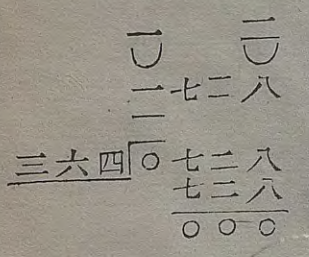 一 二
一 七二八
一
三六四 〇七二八
七二八
〇〇〇